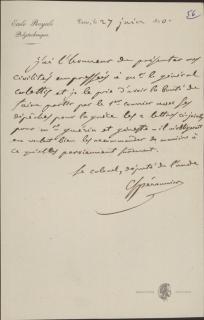 56
Ecole Royale
Polytechnique
Paris, le 27 juin
j'ai l'honneur de présenter mes
civilités empressées à mr. le général
colettis et je le prie d'avoir la bonté de
faire partir par le 1er courrier avec ses
dépêches pour la grèce les 2 lettres ci jointes
pour mrs. guérin et
en voulant bien les recommander de manière à
ce qu'elles parviennent sûrement.
le colonel, député de l'aude